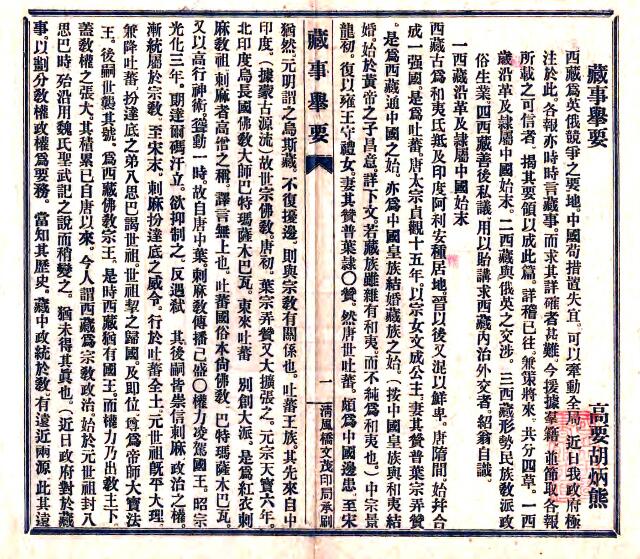 藏事舉要
高要胡炳熊
西藏爲英俄競爭之要地中國苟措置失宜。可以牽動全局。近日我政府極
注於此。各報亦時時言藏事。而求其詳確者甚難。今援據羣籍。並節取各報
所載之可信者。揭其要領以成此篇。詳稽已往。兼策將來。共分四章。一西
藏沿革及隸屬中國始末。二西藏與俄英之交涉。三西藏形勢民族敎派政
俗生業。四西藏善後私議。用以貽講求西藏內治外交者。紹翁自識。
一西藏沿革及隸屬中國始末
西藏古爲和夷氐羝及印度阿利安種居地。晉以後又混以鮮卑。唐隋間。始幷合
成一强國。是爲吐蕃。唐太宗貞觀十五年。以宗女文成公主。妻其贊普葉宗弄贊
是爲西藏通中國之始。亦爲中國皇族結婚藏族之始。(按中國皇族與和夷結
婚。始於黃帝之子昌意。詳下文。若藏族雖雜有和夷。而不純爲和夷也。)中宗景
龍初。復以雍王守禮女。妻其贊普葉隸〇贊。然唐世吐蕃。頗爲中國邊患。至宋
藏事舉要
一
清風橋文茂印局承刷
猶然。元明謂之烏斯藏。不復擾邊。則與宗敎有關係也。吐蕃王族。其先來自中
印度。(據蒙古源流。)故世宗佛敎。唐初。葉宗弄贊又大擴張之。元宗天寶六年。
北印度烏長國佛敎大師巴特瑪薩木巴瓦。東來吐蕃 別創大派。是爲紅衣刺
麻敎祖。刺麻者高僧之稱。譯言無上也。吐蕃國俗本尙佛敎。巴特瑪薩木巴瓦。
又以高行神術。聳動一時。故自唐中葉。刺麻敎傳播已盛〇權力凌駕國王。昭宗
光化三年。期達爾瑪汗立。欲抑制之。反遇弒 其後嗣皆崇信刺麻 政治之權。
漸統屬於宗敎。至宋末。刺麻扮達底之威令。行於吐蕃全土。元世祖旣平大理。
兼降吐蕃。扮達底之弟八思巴謁世祖。世祖挈之歸國。及卽位。尊爲帝師大寶法
王。後嗣世襲其號。爲西藏佛敎宗王。是時西藏猶有國王。而權力乃出敎主下。
蓋敎權之張大。其積累已自唐以來。今人謂西藏爲宗敎政治。始於元世祖封八
思巴時 殆沿用魏氏聖武記之說而稍變之。猶未得其眞也。(近日政府對於藏
事。以劃分敎權政權爲要務。當知其歷史。)藏中政統於敎。有遠近兩源。此其遠